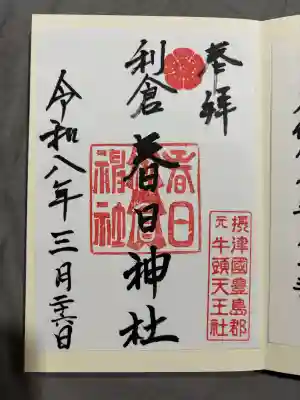 奉拝
摂津國豊島郡
元牛頭天王社
利倉 春日神社
令和八年三月廿六日